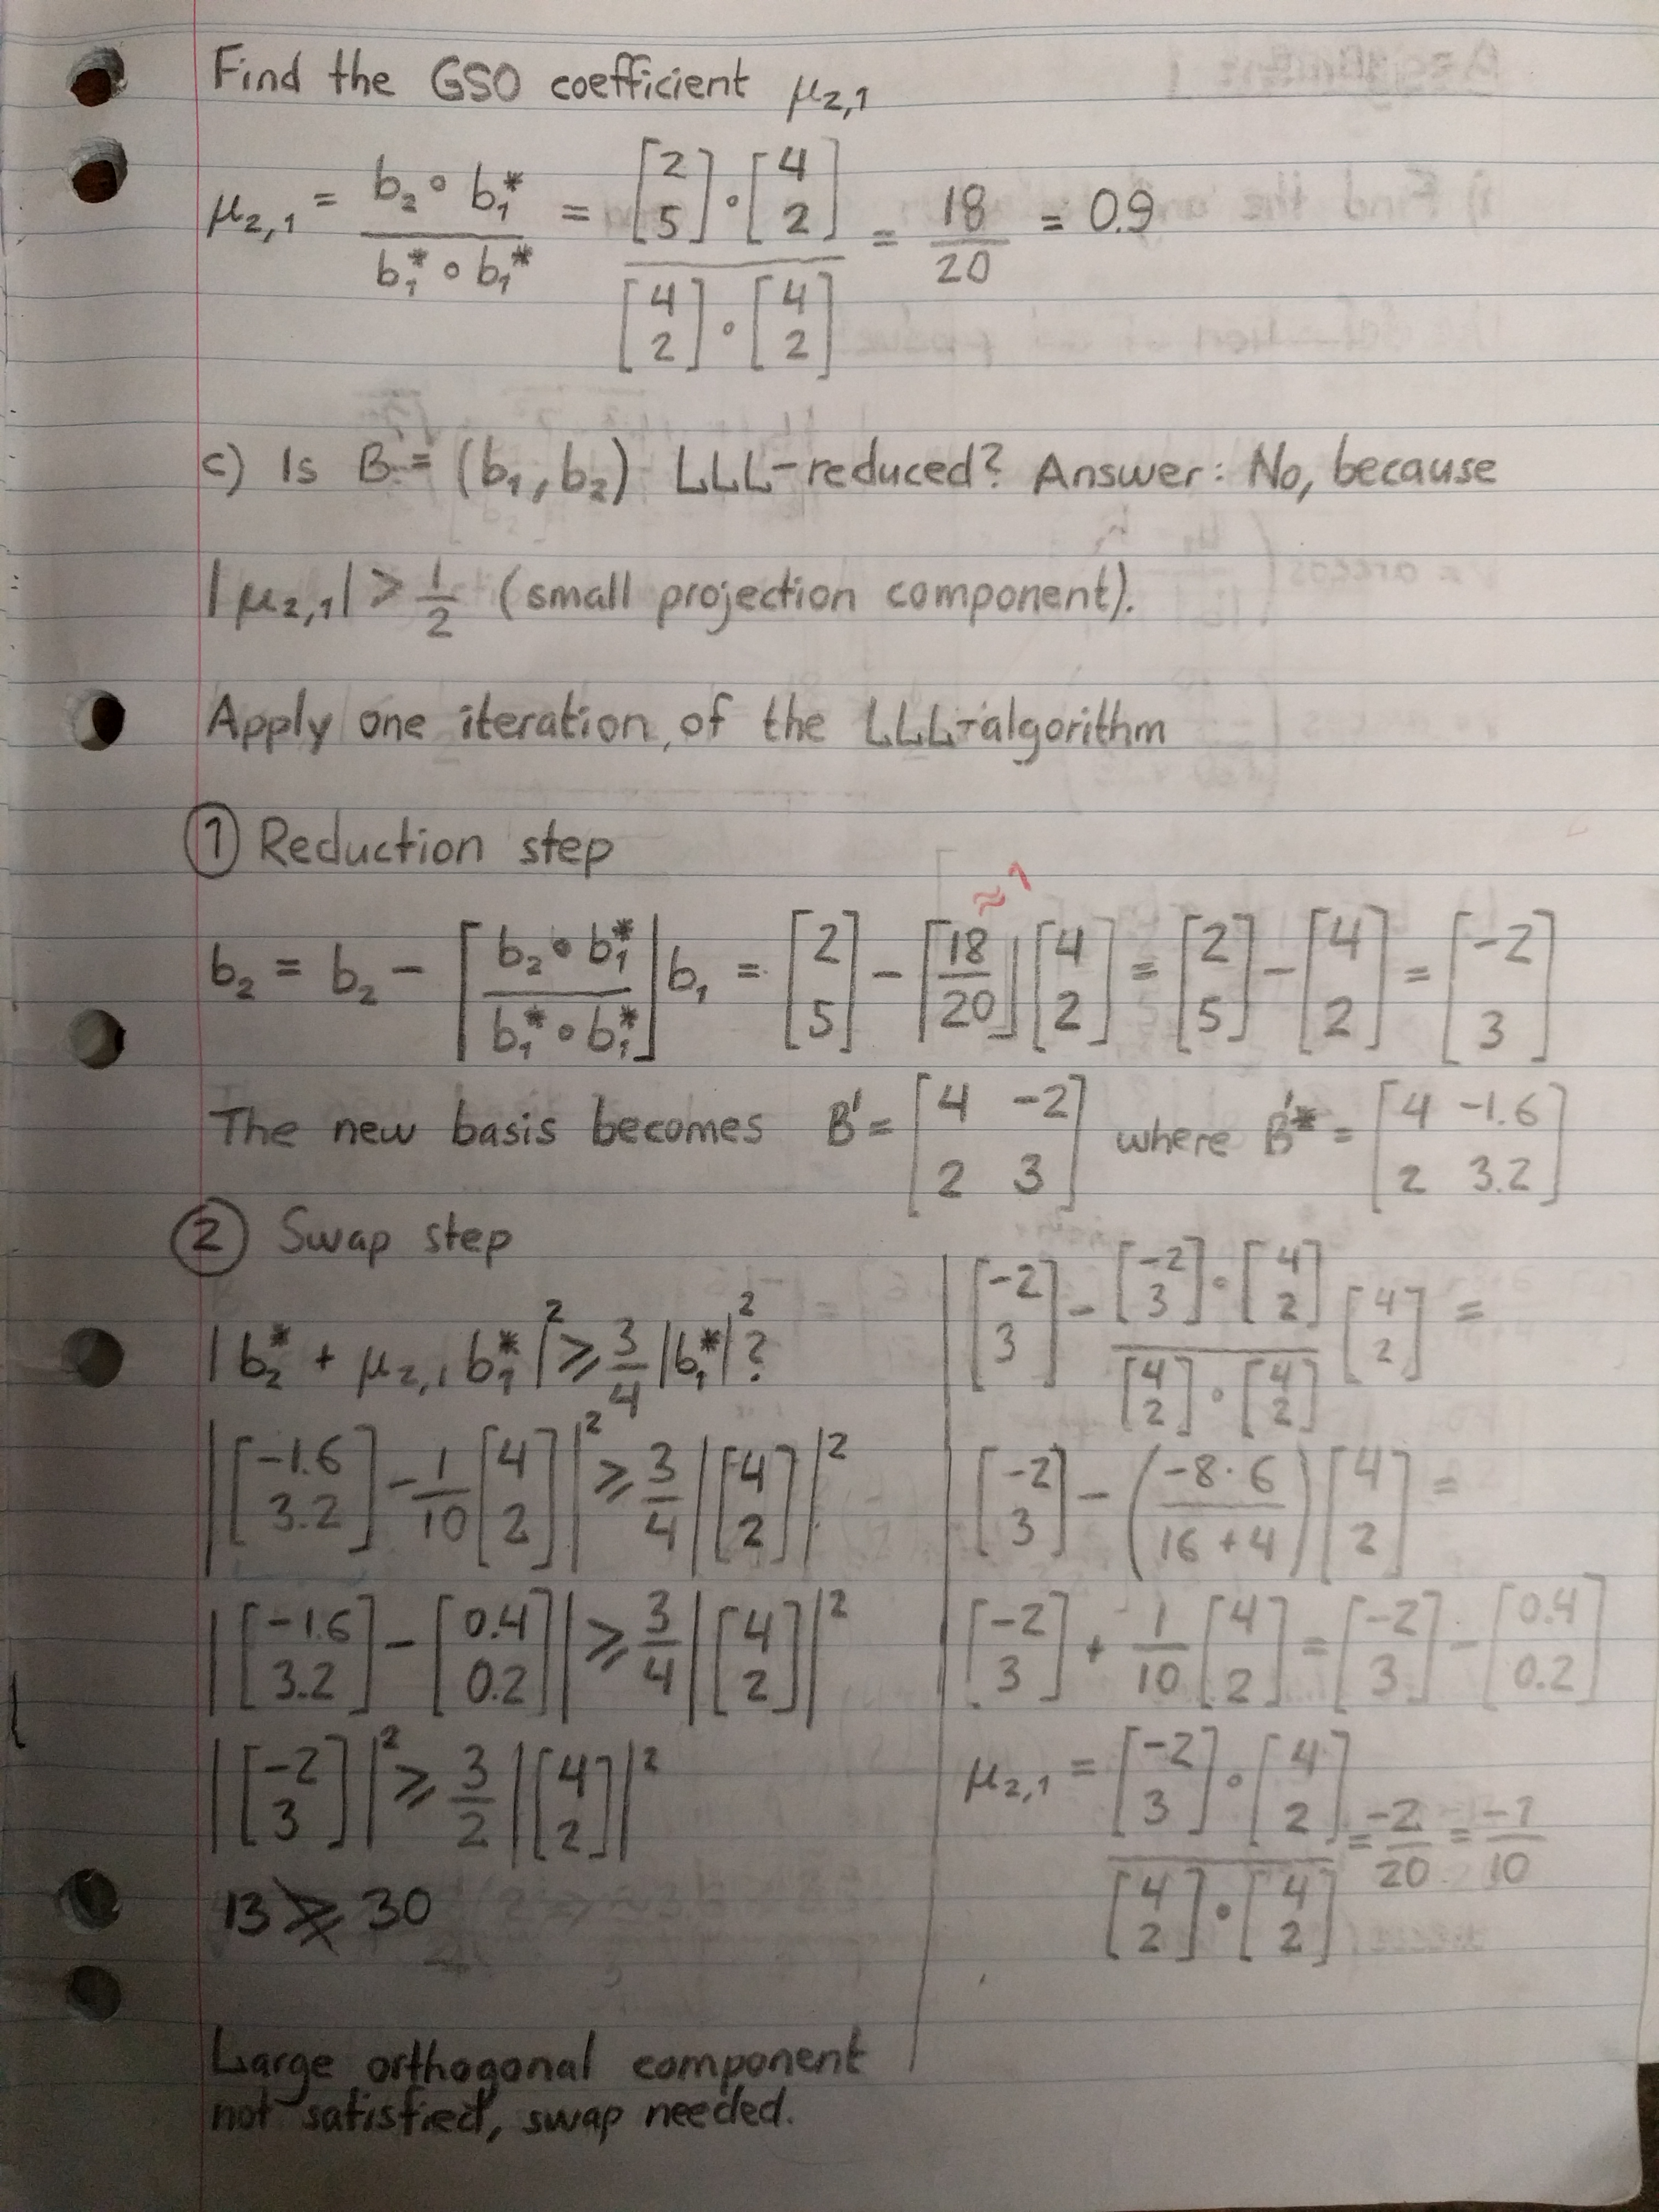 Find the GSO coefficient μ₂,₁
μ₂,₁ = (b₂ ∘ b₁*) / (b₁* ∘ b₁*) = ([2 5] ∘ [4 2]) / ([4 2] ∘ [4 2]) = 18/20 = 0.9
c) Is B = (b₁, b₂) LLL-reduced? Answer: No, because
|μ₂,₁| > 1/2 (small projection component).
Apply one iteration of the LLL-algorithm
① Reduction step
≈ 1
b₂ = b₂ − ⌈(b₂ ∘ b₁*) / (b₁* ∘ b₁*)⌋ b₁ = [2 5] − ⌈18/20⌋ [4 2] = [2 5] − [4 2] = [-2 3]
The new basis becomes B' = [4 -2; 2 3] where B'* = [4 -1.6; 2 3.2]
② Swap step
|b₂* + μ₂,₁ b₁*|² ≥ 3/4 |b₁*|² ?
|[-1.6 3.2] − 1/10 [4 2]|² ≥ 3/4 |[4 2]|²
|[-1.6 3.2] − [0.4 0.2]| ≥ 3/4 |[4 2]|²
|[-2 3]|² ≥ 3/2 |[4 2]|²
13 ≱ 30
Large orthogonal component
not satisfied, swap needed.
[-2 3] − ([-2 3] ∘ [4 2]) / ([4 2] ∘ [4 2]) [4 2] =
[-2 3] − ((-8 · 6) / (16 + 4)) [4 2] =
[-2 3] + 1/10 [4 2] = [-2 3] − [0.4 0.2]
μ₂,₁ = ([-2 3] ∘ [4 2]) / ([4 2] ∘ [4 2]) = -2/20 = -1/10